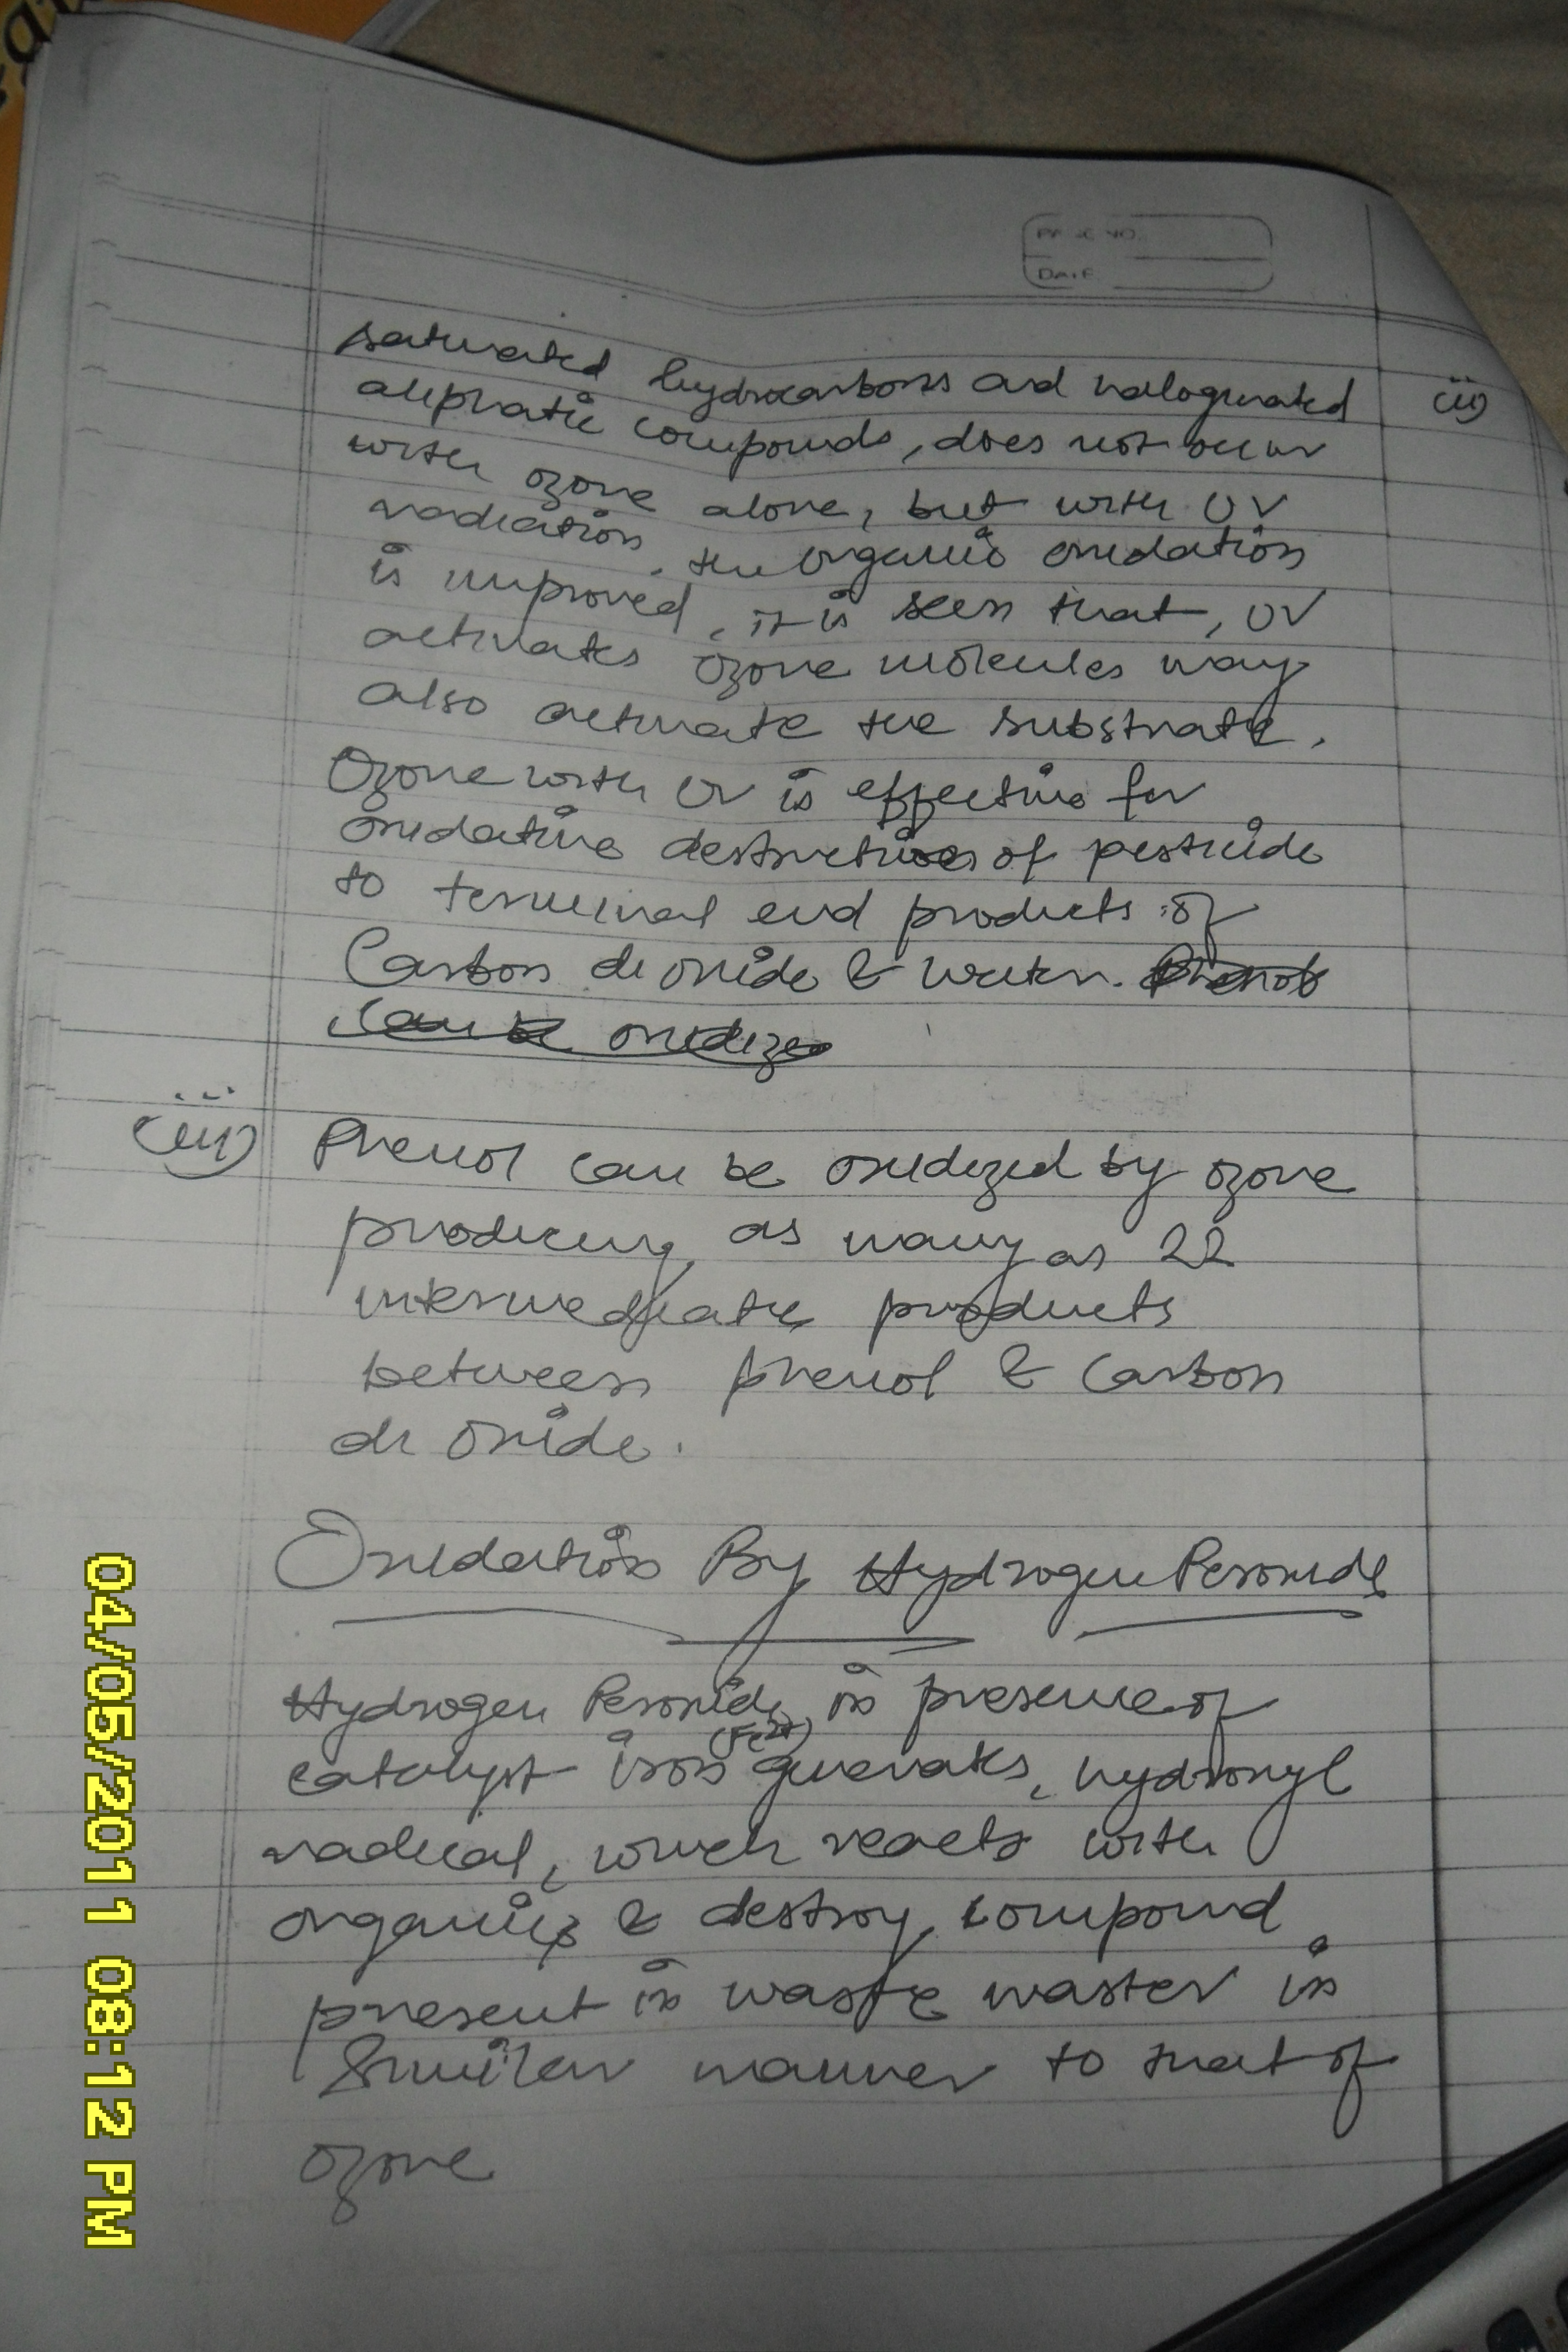 PAGE NO.
DATE
saturated hydrocarbons and halogenated
aliphatic compounds, does not occur
with ozone alone, but with UV
radiation, the organic oxidation
is improved, it is seen that, UV
activates ozone molecules may
also activate the substrate.
Ozone with UV is effective for
oxidative destruction of pesticide
to terminal end products of
Carbon dioxide & water. Phenol
can be oxidize
(iii) Phenol can be oxidized by ozone
producing, as many as 22
intermediate products
between phenol & Carbon
dioxide.
Oxidation By Hydrogen Peroxide
Hydrogen Peroxide, in presence of
catalyst iron (Fe2+) generates, hydroxyl
radical, which reacts with
organics & destroy, compound
present in waste waster in
Similar manner to that of
ozone
iii)
04/05/2011 08:12 PM